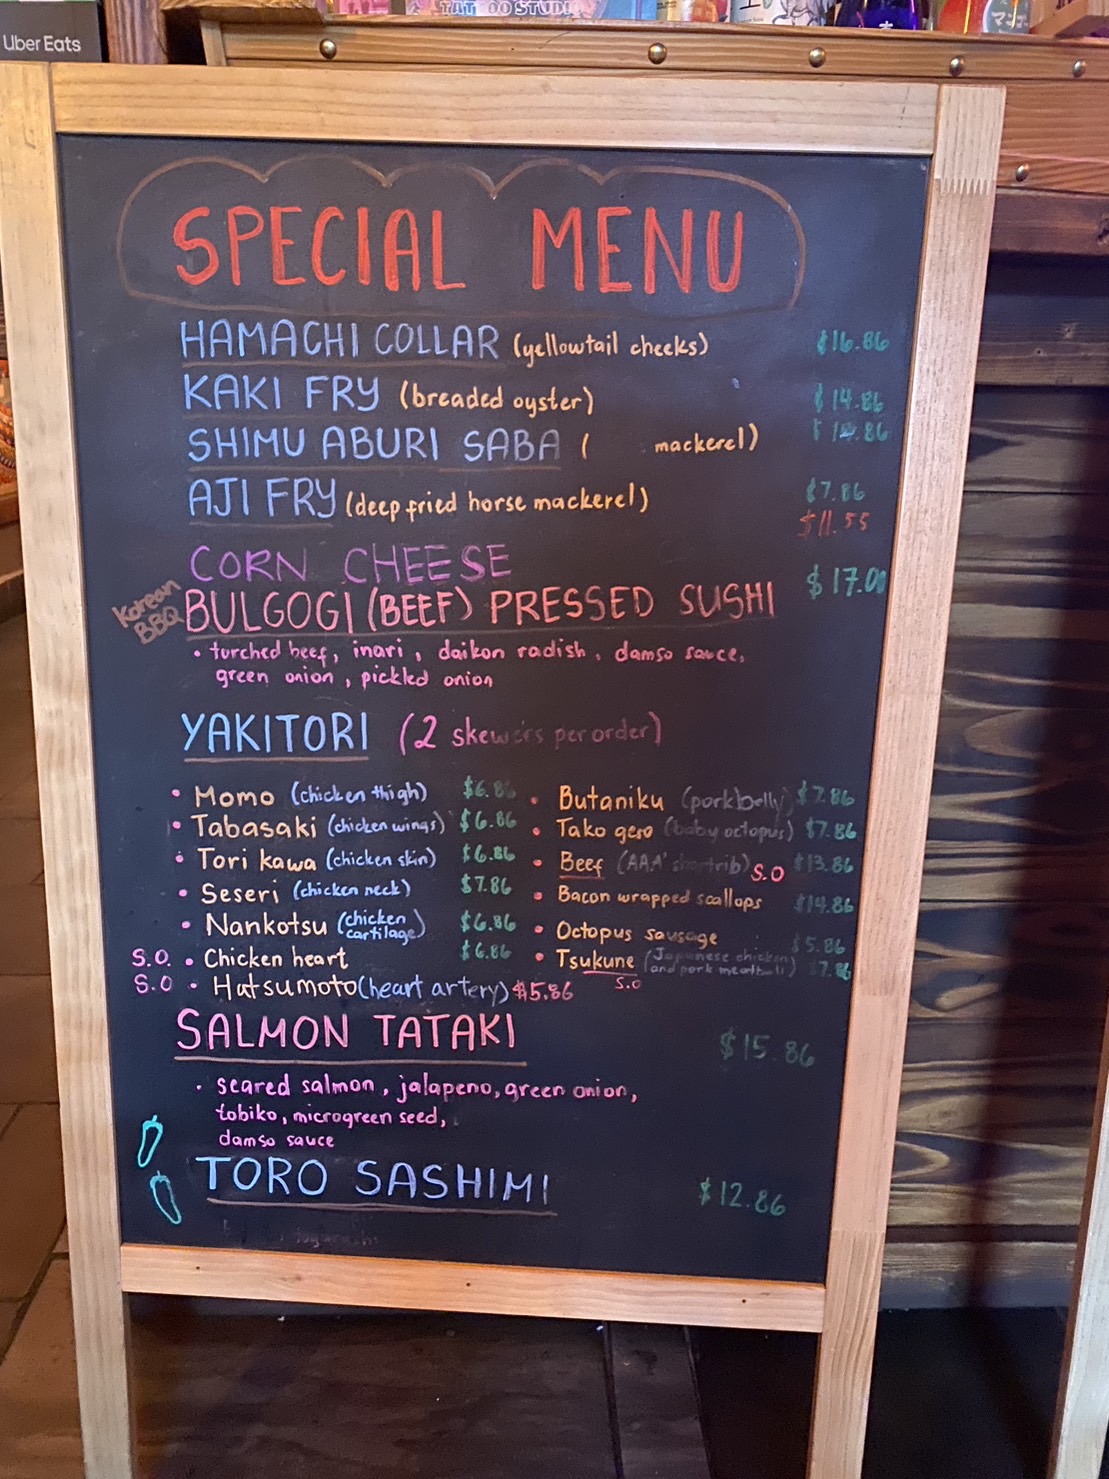 Uber Eats
TATTOO STUDIO
SPECIAL MENU
HAMACHI COLLAR (yellowtail cheeks) $16.86
KAKI FRY (breaded oyster) $14.86
SHIMU ABURI SABA ( mackerel)
AJI FRY (deep fried horse mackerel) $7.86
$11.55
CORN CHEESE
Korean BBQ BULGOGI (BEEF) PRESSED SUSHI $17.00
• turched beef, inari, daikon radish, damso sauce,
green onion, pickled onion
YAKITORI (2 skewers per order)
• Momo (chicken thigh) $6.86
• Tabasaki (chicken wings) $6.86
• Tori kawa (chicken skin) $6.86
• Seseri (chicken neck) $7.86
• Nankotsu (chicken cartilage) $6.86
S.O. • Chicken heart $6.86
S.O • Hatsumoto (heart artery) $5.86
• Butaniku (pork belly) $7.86
• Tako geso (baby octopus) $7.86
• Beef (AAA shortrib) S.O $13.86
• Bacon wrapped scallops $14.86
• Octopus sausage $5.86
• Tsukune (Japanese chicken and pork meatball) $7.86
S.O
SALMON TATAKI $15.86
• seared salmon, jalapeno, green onion,
tobiko, microgreen seed,
damso sauce
TORO SASHIMI $12.86